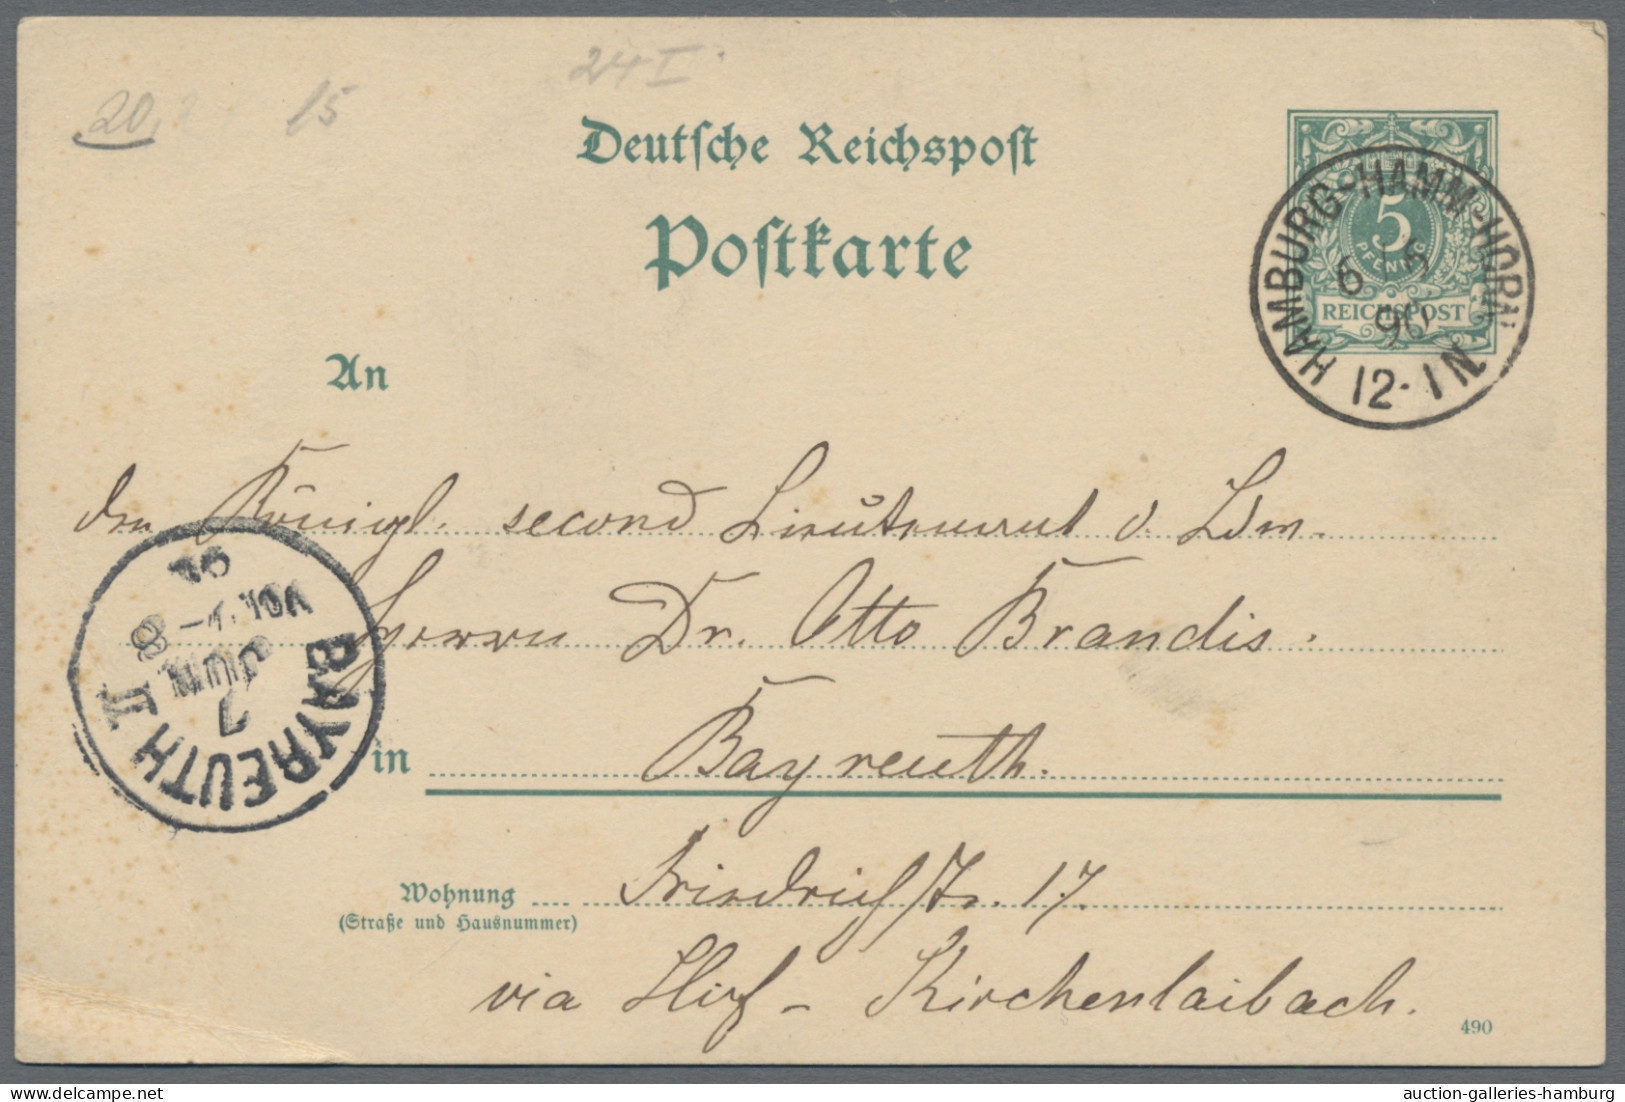 20, 15 24 I
Deutsche Reichspost
Postkarte
5
PFENNIG
REICHSPOST
HAMBURG-HAMM-HORN
6 6
90
12-1N.
An
den Königl. second Lieutenant d. Ldw.
Herrn Dr. Otto Brandis.
in Bayreuth.
Wohnung Friedrichstr. 17.
(Straße und Hausnummer)
via Hof - Kirchenlaibach.
490
BAYREUTH II
7
JUN
VOR. 7-8
90
auction-galleries-hamburg